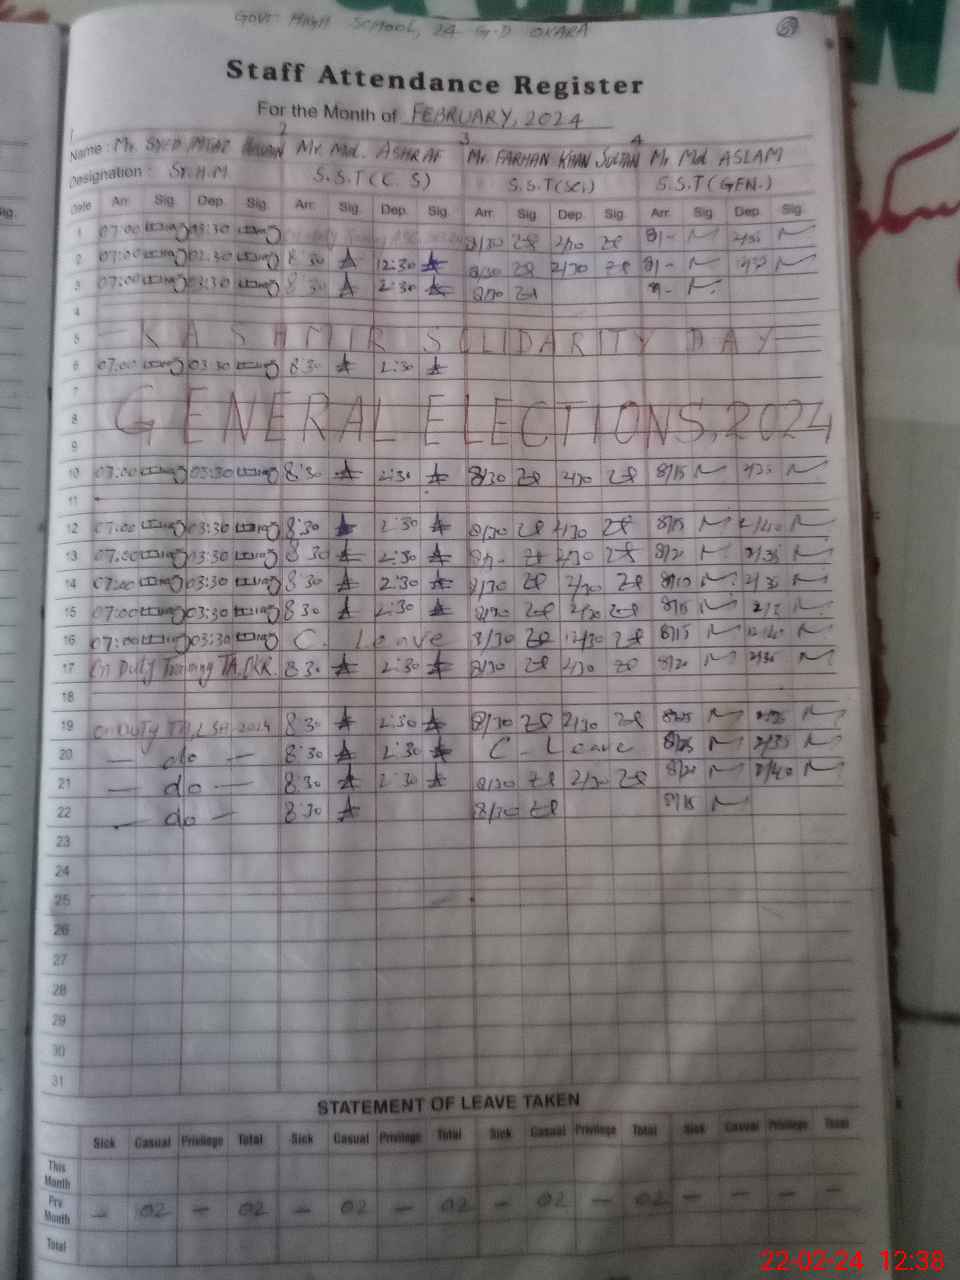 GOVT: HIGH SCHOOL, 24 G.D OKARA 89
Staff Attendance Register
For the Month of FEBRUARY, 2024
1 2 3 4
Name : Mr. SYED IMTIAZ HUSSAIN Mr. Md. ASHRAF Mr. FARHAN KHAN SULTAN Mr. Md ASLAM
Designation : Sr. H.M S.S.T (C.S) S.S.T (Sci) S.S.T (GEN.)
Date Arr. Sig. Dep. Sig. Arr. Sig. Dep. Sig. Arr. Sig. Dep. Sig. Arr. Sig. Dep. Sig.
1 07:00 03:30 8/30 2/30 8/-
2 07:00 02:30 8:30 12:30 8/30 8/-
3 07:00 03:30 8:30 2:30 8/30 8/-
4
5 KASHMIR SOLIDARITY DAY
6 07:00 03:30 8:30 2:30
7
8 GENERAL ELECTIONS, 2024
9
10 07:00 03:30 8:30 2:30 8/30 2/30 8/15 2/35
11
12 07:00 03:30 8:30 2:30 8/30 2/30 8/15 2/40
13 07:00 03:30 8:30 2:30 2/30 8/20 2/35
14 07:00 03:30 8:30 2:30 8/30 2/30 8/10 2/35
15 07:00 03:30 8:30 2:30 8/30 2/30 8/15
16 07:00 03:30 C. Leave 8/30 12/30 8/15 12/40
17 On Duty Training TA, OKR. 8:30 2:30 8/30 2/30 8/20 2/35
18
19 On DUTY 2024 8:30 2:30 8/30 2/30 8/25 2/35
20 — do — 8:30 2:30 C- Leave 8/25 2/35
21 — do — 8:30 2:30 8/30 2/30 8/20 2/40
22 — do — 8:30 8/30 8/15
23
24
25
26
27
28
29
30
31
STATEMENT OF LEAVE TAKEN
Sick Casual Privilege Total Sick Casual Privilege Total Sick Casual Privilege Total Sick Casual Privilege Total
This Month
Prv Month — 02 — 02 — 02 — 02 — 02 — 02 — — — —
Total
22-02-24 12:38